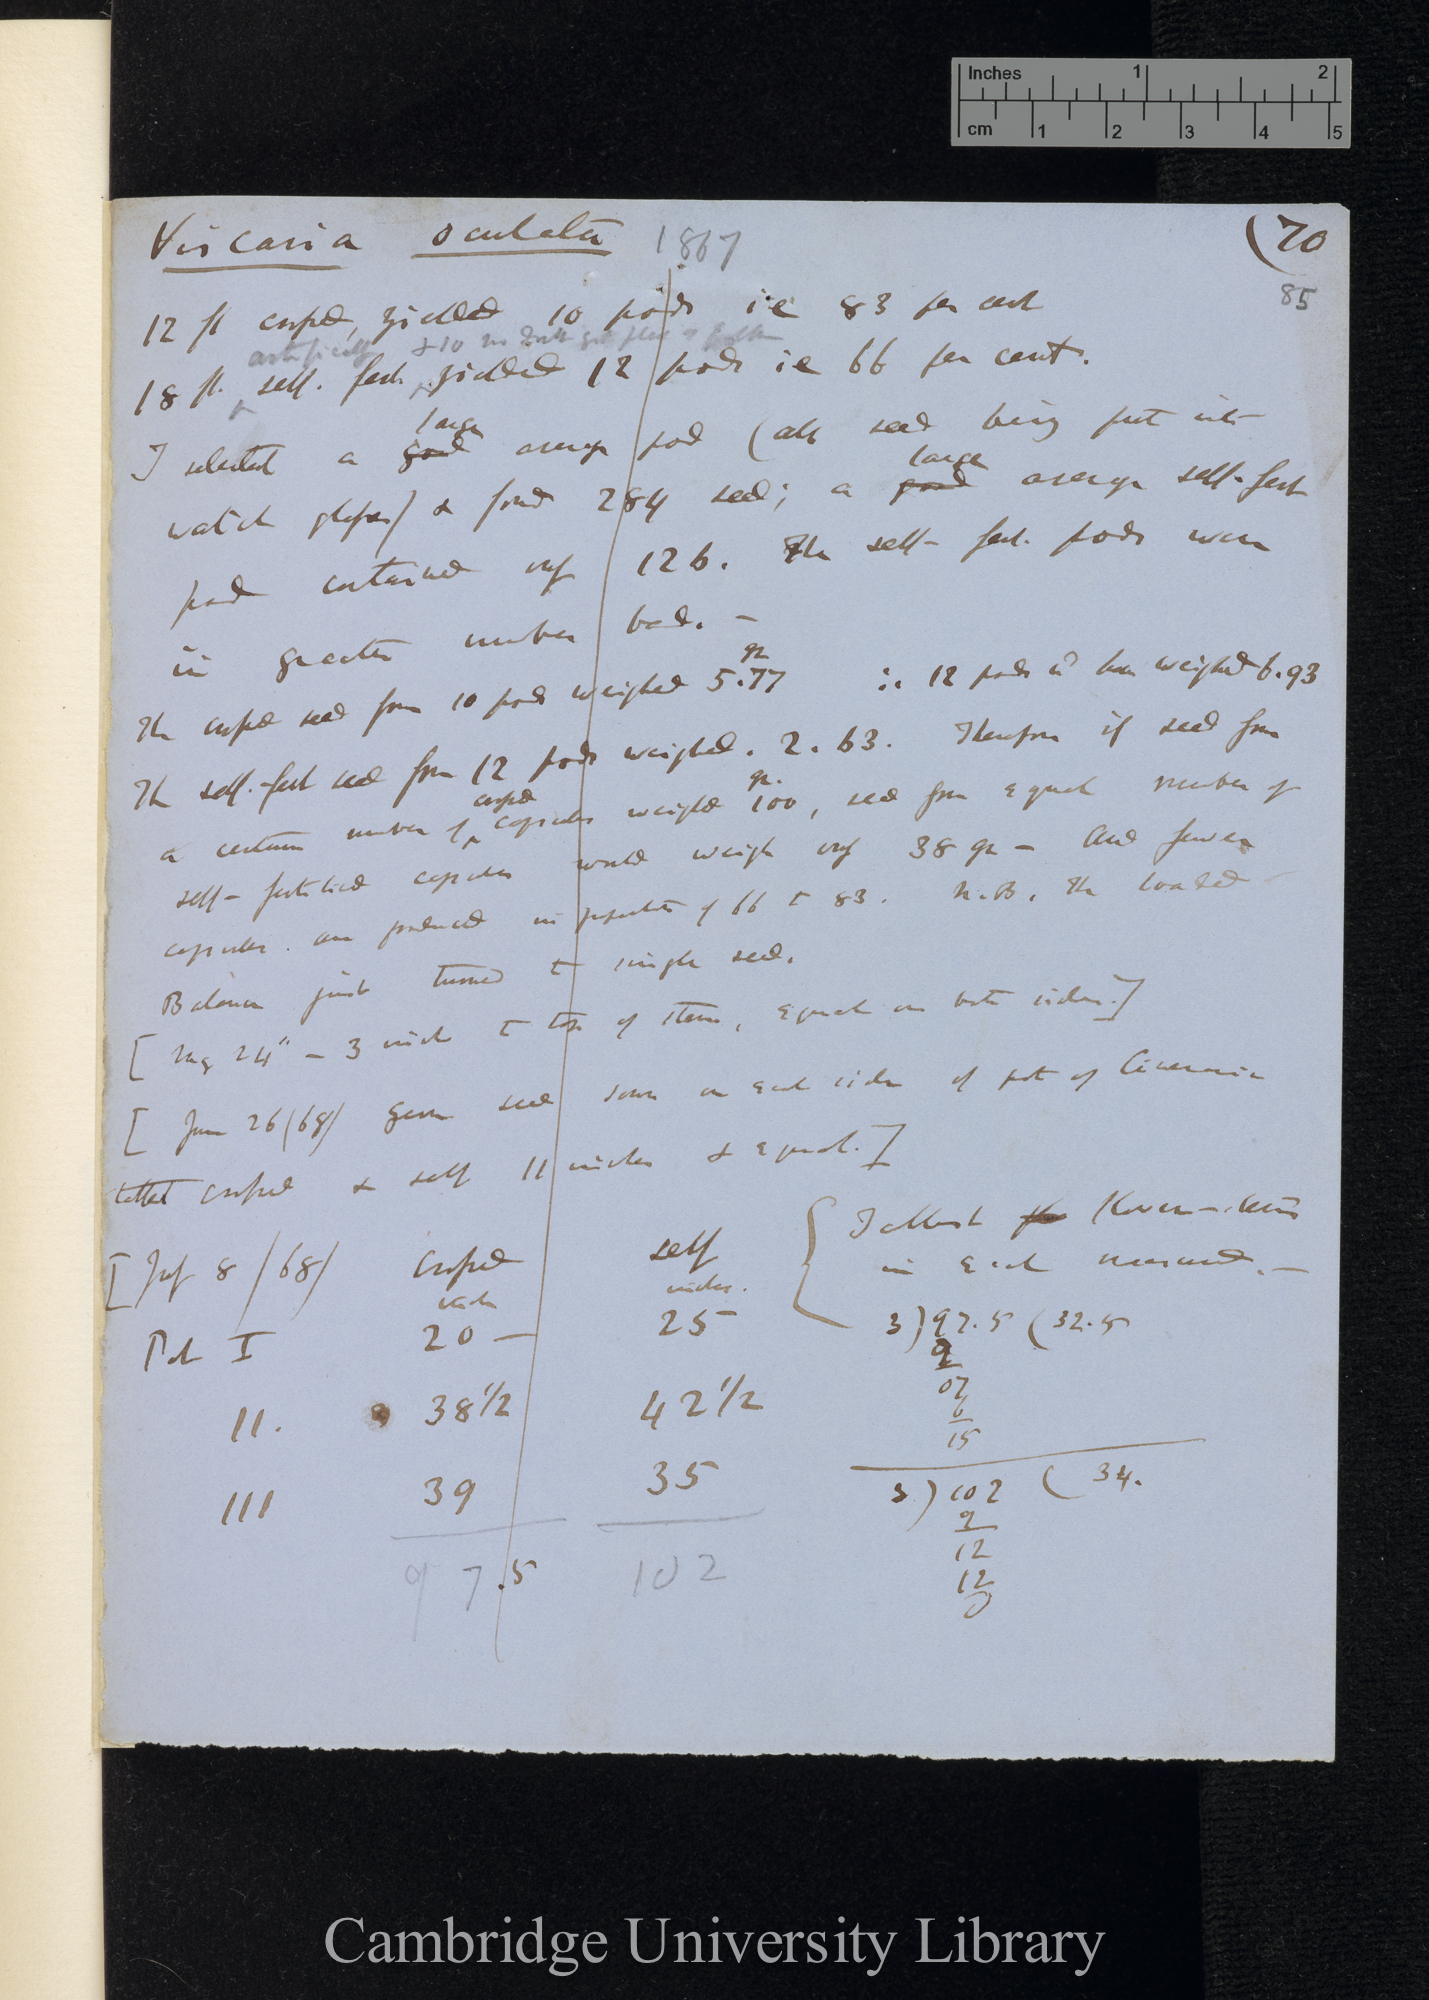 Inches 1 2
cm 1 2 3 4 5
Viscaria oculata 1867
(70
85
12 fl crossed, yielded 10 pods ie 83 per cent
artificially & 10
18 fl. self. fert. yielded 12 pods ie 66 per cent.
large
I selected a good average pod (all seed being put into
large
watch glasses) & found 284 seed; a good average self-fert
pod contained only 126. The self-fert. pods were
in greater number bad. —
gr
The crossed seed from 10 pods weighed 5.77 ∴ 12 pods wd have weighed 6.93
The self-fert seed from 12 pods weighed. 2.63. Therefore if seed from
crossed gr.
a certain number of capsules weighed 100, seed from equal number of
self-fertilised capsules would weigh only 38 gr — And fewer
capsules are produced in proportion of 66 to 83. N.B. The loaded
Balance just turned to single seed.
[Aug 24" — 3 inch to top of stem, equal on both sides.]
[June 26/68/ seed sown on each side of pot of Cineraria
tallest crossed & self 11 inches & equal.]
[July 8/68/ crossed self
inches inches.
Pot I 20 — 25
II. 38 1/2 42 1/2
III 39 35
97.5 102
{ Tallest flower-stems
in each measured. —
3) 97.5 (32.5
9
07
6
15
3) 102 (34.
9
12
12
0
Cambridge University Library